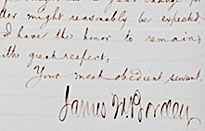 ther might reasonably be expected
I have the honor to remain
with great respect,
Your most obedient servant,
James